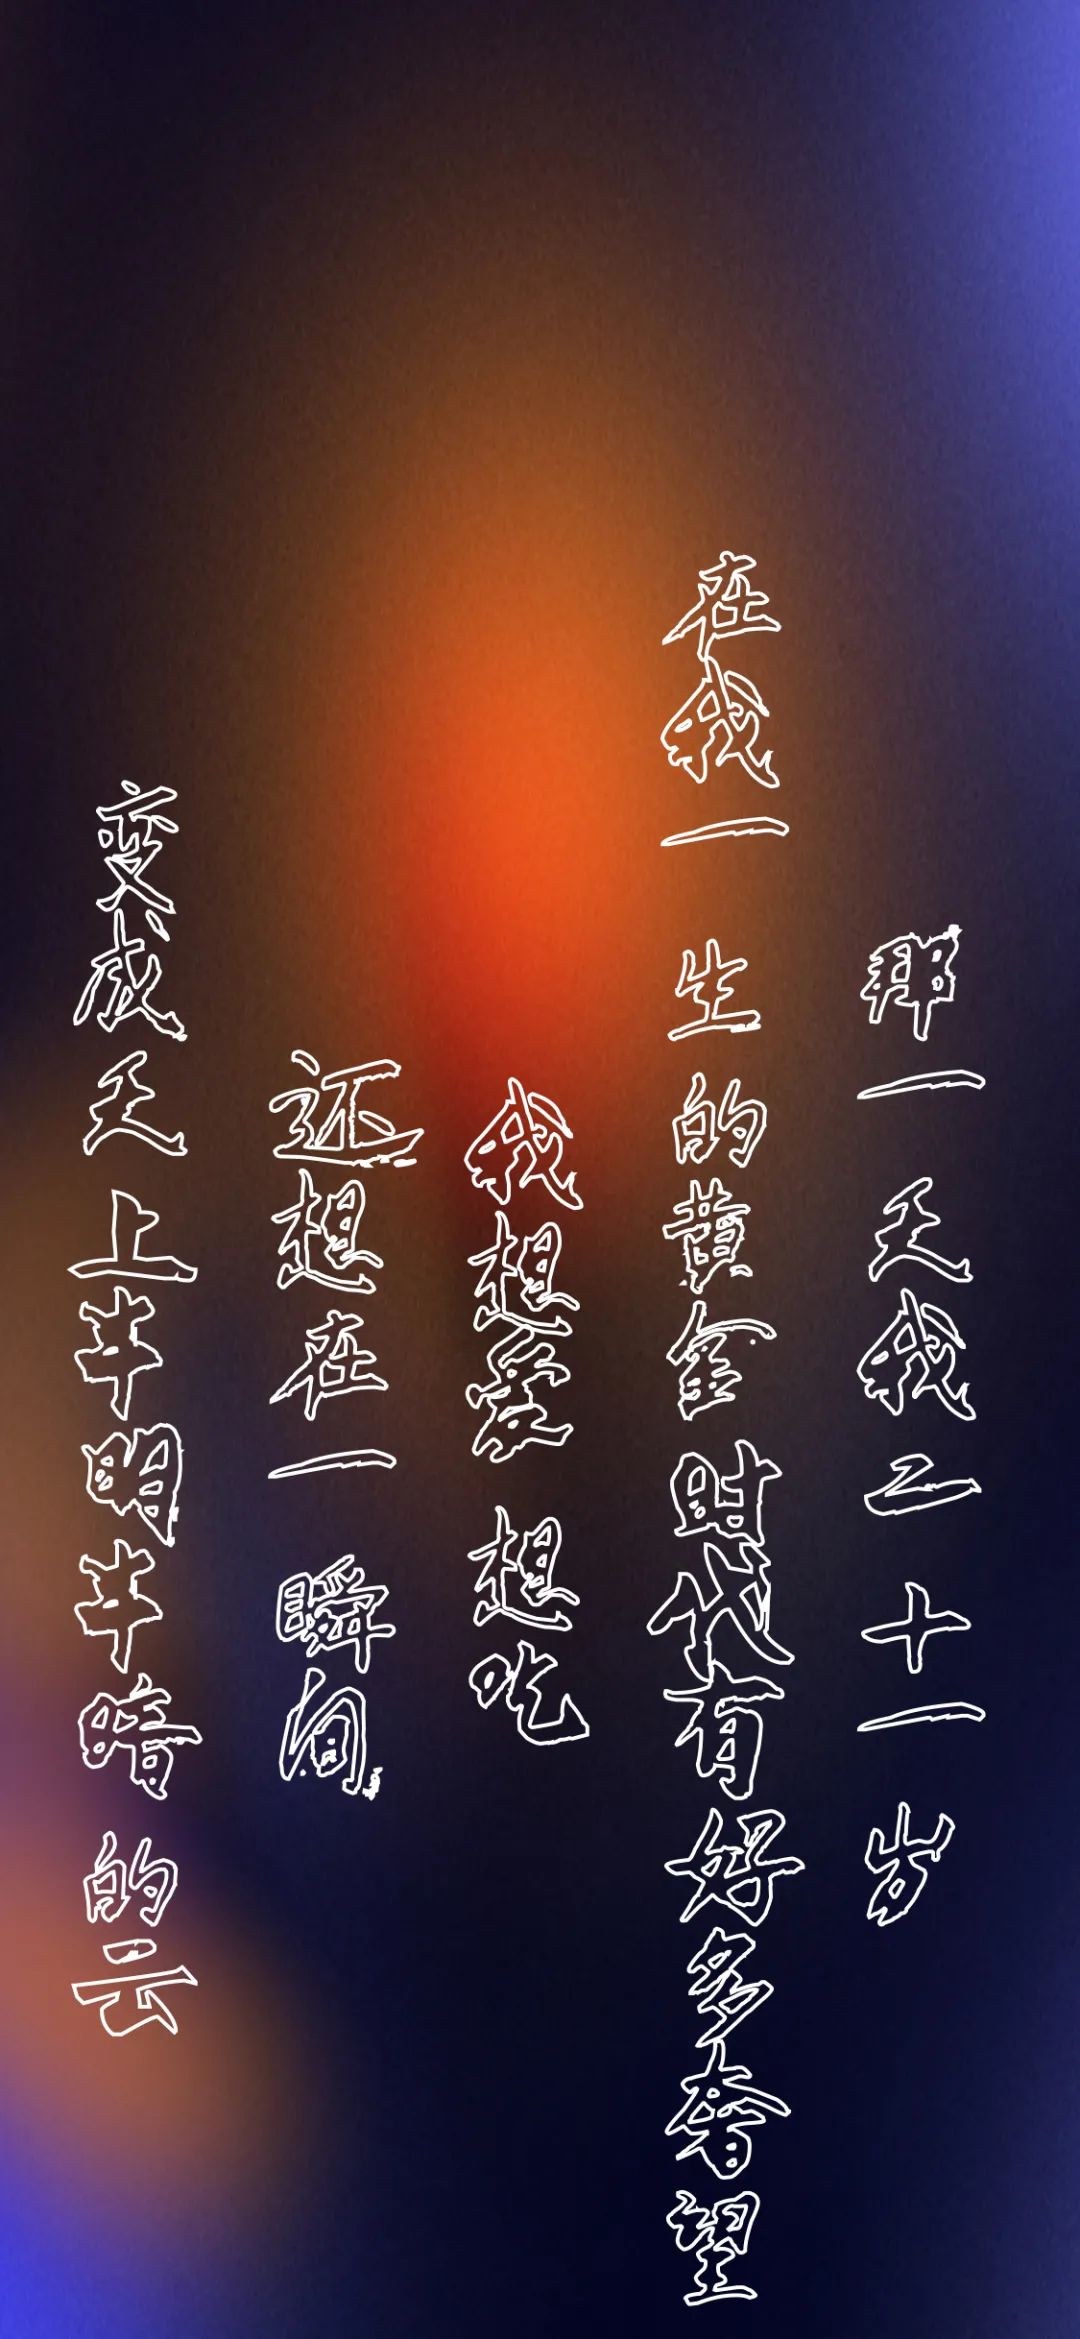 那一天我二十一岁
在我一生的黄金时代有好多奢望
我想爱想吃
还想在一瞬间
变成天上半明半暗的云